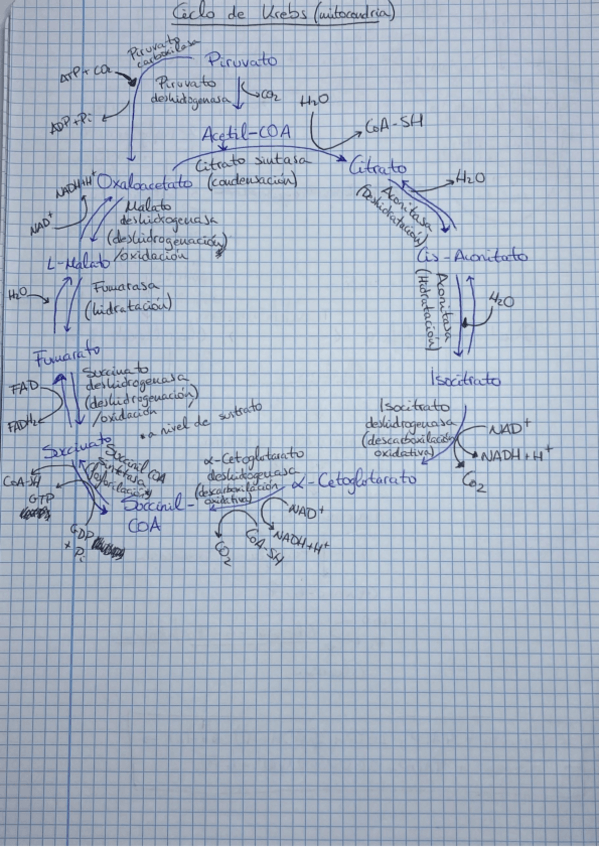 Ciclo de Krebs (mitocondria)
Piruvato
Piruvato
carboxilasa
ATP + CO₂
ADP + Pi
Piruvato
deshidogenasa
CO₂
H₂O
CoA-SH
Acetil-COA
Citrato sintasa
(condensación)
Citrato
H₂O
Aconitasa
(Deshidratación)
Cis-Aconitato
Aconitasa
(Hidratación)
H₂O
Isocitrato
Isocitrato
deshidrogenasa
(descarboxilación
oxidativa)
NAD⁺
NADH + H⁺
CO₂
α-Cetoglutarato
α-Cetoglutarato
deshidogenasa
(descarboxilación
oxidativa)
NAD⁺
NADH + H⁺
CoA-SH
CO₂
Succinil-
COA
Succinil COA
sintetasa
(fosforilación)
• a nivel de sustrato
CoA-SH
GTP
GDP
+ Pi
Succinato
Succinato
deshidrogenasa
(deshidrogenación)
/oxidación
FAD
FADH₂
Fumarato
Fumarasa
(hidratación)
H₂O
L-Malato
Malato
deshidrogenasa
(deshidrogenación)
/oxidación
NAD⁺
NADH + H⁺
Oxaloacetato